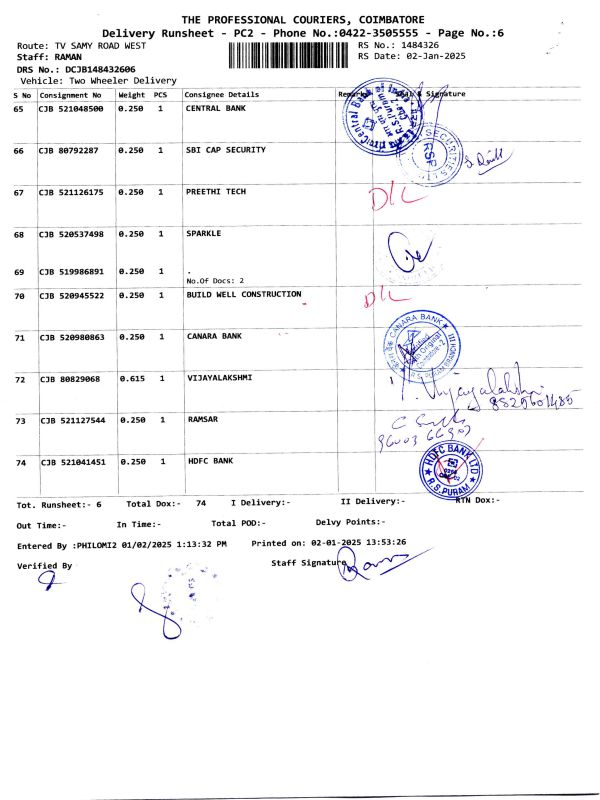 THE PROFESSIONAL COURIERS, COIMBATORE
Delivery Runsheet - PC2 - Phone No.:0422-3505555 - Page No.:6
Route: TV SAMY ROAD WEST RS No.: 1484326
Staff: RAMAN RS Date: 02-Jan-2025
DRS No.: DCJB148432606
Vehicle: Two Wheeler Delivery
S No Consignment No Weight PCS Consignee Details Remarks Seal & Signature
65 CJB 521048500 0.250 1 CENTRAL BANK
66 CJB 80792287 0.250 1 SBI CAP SECURITY
67 CJB 521126175 0.250 1 PREETHI TECH D/L
68 CJB 520537498 0.250 1 SPARKLE
69 CJB 519986891 0.250 1 .
No.Of Docs: 2
70 CJB 520945522 0.250 1 BUILD WELL CONSTRUCTION D/L
71 CJB 520980863 0.250 1 CANARA BANK CANARA BANK
72 CJB 80829068 0.615 1 VIJAYALAKSHMI Vijayalakshmi
73 CJB 521127544 0.250 1 RAMSAR
74 CJB 521041451 0.250 1 HDFC BANK HDFC BANK LTD
R.S.PURAM
Tot. Runsheet:- 6 Total Dox:- 74 I Delivery:- II Delivery:- RTN Dox:-
Out Time:- In Time:- Total POD:- Delvy Points:-
Entered By :PHILOMI2 01/02/2025 1:13:32 PM Printed on: 02-01-2025 13:53:26
Verified By Staff Signature Raman